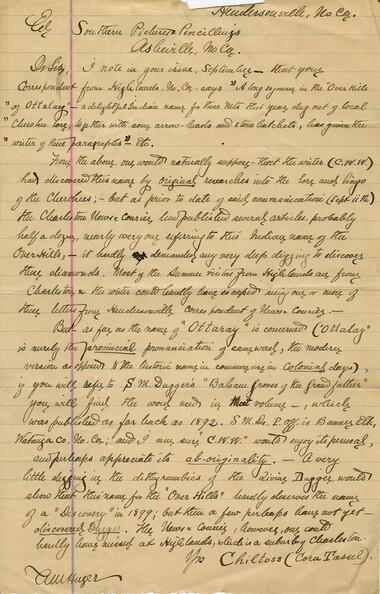 Hendersonville, No Ca.
Ed
Southern Pictures & Pencillings
Asheville, No Ca.
Dr Sir, I note in your issue, September — that your
Correspondent from Highlands, No. Ca. says "A long sojourn in the "Over Hills
"of Ottalay" — a delightful Indian name for these Mts this year dug out of local
"Cherokee lore, together with some arrow-heads and stone hatchets, has given the
"writer of these paragraphs" etc.
From the above, one would naturally suppose that the writer (C.W.W.)
had discovered this name by original researches into the lore and lingo
of the Cherokees; — but as prior to date of said communication (Sept 11th)
the Charleston News & Courier, had published several articles, probably
half a dozen, nearly every one referring to this Indian name of the
Over Hills, — it hardly demanded any very deep digging to discover
these diamonds. Most of the Summer visitors from Highlands are from
Charleston & the writer could hardly have escaped seeing one or more of
these letters from Hendersonville correspondent of News & Courier. —
But as far as the name of "Ottaray" is concerned ("Ottalay"
is merely the provincial pronunciation of same word, the modern
version as opposed to the historic name in common use in Colonial days),
if you will refer to S. M. Dugger's "Balsam Groves of the Grandfather"
you will find the word used in that volume —, which
was published as far back as 1892. S. M. D's. P. Off is Banner Elk,
Watauga Co. No. Ca; and I am sure C.W.W. would enjoy its perusal,
and perhaps appreciate its ab-originality. — A very
little digging in the dithyrambics of the "Divine Dugger" would
show that this name for the "Over Hills" hardly deserves the name
of a "Discovery" in 1899; but then a few perhaps have not yet
discovered Dugger. The News & Courier, however, one could
hardly have missed at Highlands, which is a suburb of Charleston.
Yrs Chiltoss (Corn Tassel).
A M Huger